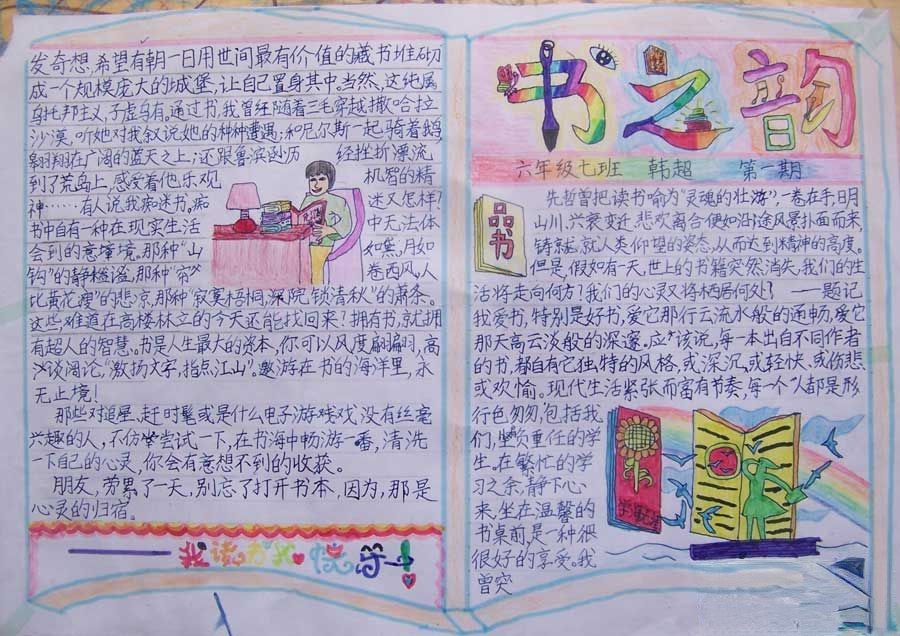 书之韵
六年级七班 韩超 第一期
品书
先哲曾把读书喻为“灵魂的壮游”,一卷在手,明
山川,兴衰变迁,悲欢离合便如沿途风景扑面而来,
铸就人类仰望的姿态,从而达到精神的高度。
但是,假如有一天,世上的书籍突然消失,我们的生
活将走向何方?我们的心灵又将栖居何处? ——题记
我爱书,特别是好书,爱它那行云流水般的通畅,爱它
那天高云淡般的深邃。应该说,每一本出自不同作者
的书,都自有它独特的风格,或深沉,或轻快、或伤悲
或欢愉。现代生活紧张而富有节奏,每一个人都是形
行色匆匆,包括我
们,负重任的学
生。在繁忙的学
习之余,静下心
来,坐在温馨的
书桌前,是一种很
很好的享受。我
曾突
发奇想,希望有朝一日用世间最有价值的藏书堆砌
成一个规模庞大的城堡,让自己置身其中。当然,这纯属
乌托邦主义,子虚乌有。通过书,我曾经随着三毛穿越撒哈拉
沙漠,听她对我叙说她的种种遭遇;和尼尔斯一起骑着鹅,
翱翔在广阔的蓝天之上;还跟鲁滨逊历 经挫折漂流
到了荒岛上,感受着他乐观 机智的精
神……有人说我痴迷书。痴 迷又怎样?
书中自有一种在现实生活 中无法体
会到的意境。那种“山 如黛,月如
钩”的静谧,那种“帘 卷西风,人
比黄花瘦”的悲凉,那种“寂寞梧桐,深院,锁清秋”的萧条。
这些难道在高楼林立的今天还能找回来?拥有书,就拥
有超人的智慧。书是人生最大的资本,你可以风度翩翩,高
谈阔论,“激扬文字,指点江山”。遨游在书的海洋里,永
无止境!
那些对追星、赶时髦或是什么电子游戏戏没有丝毫
兴趣的人,不仿尝试一下,在书海中畅游一番,清洗
一下自己的心灵,你会有意想不到的收获。
朋友,劳累了一天,别忘了打开书本,因为,那是
心灵的归宿。
——我读书我快乐